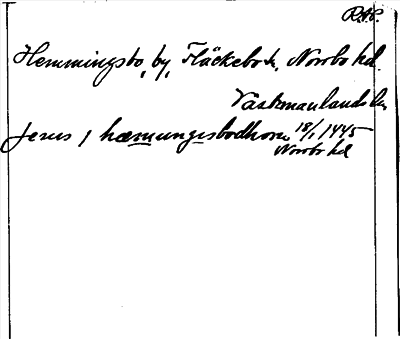 R.A.P.
Hemmingsbo, by, Fläckebo sn, Norrbo hd.
Västmanlands län
Jesus j hæmungisbodhom 18/1 1445
Norrbo hd